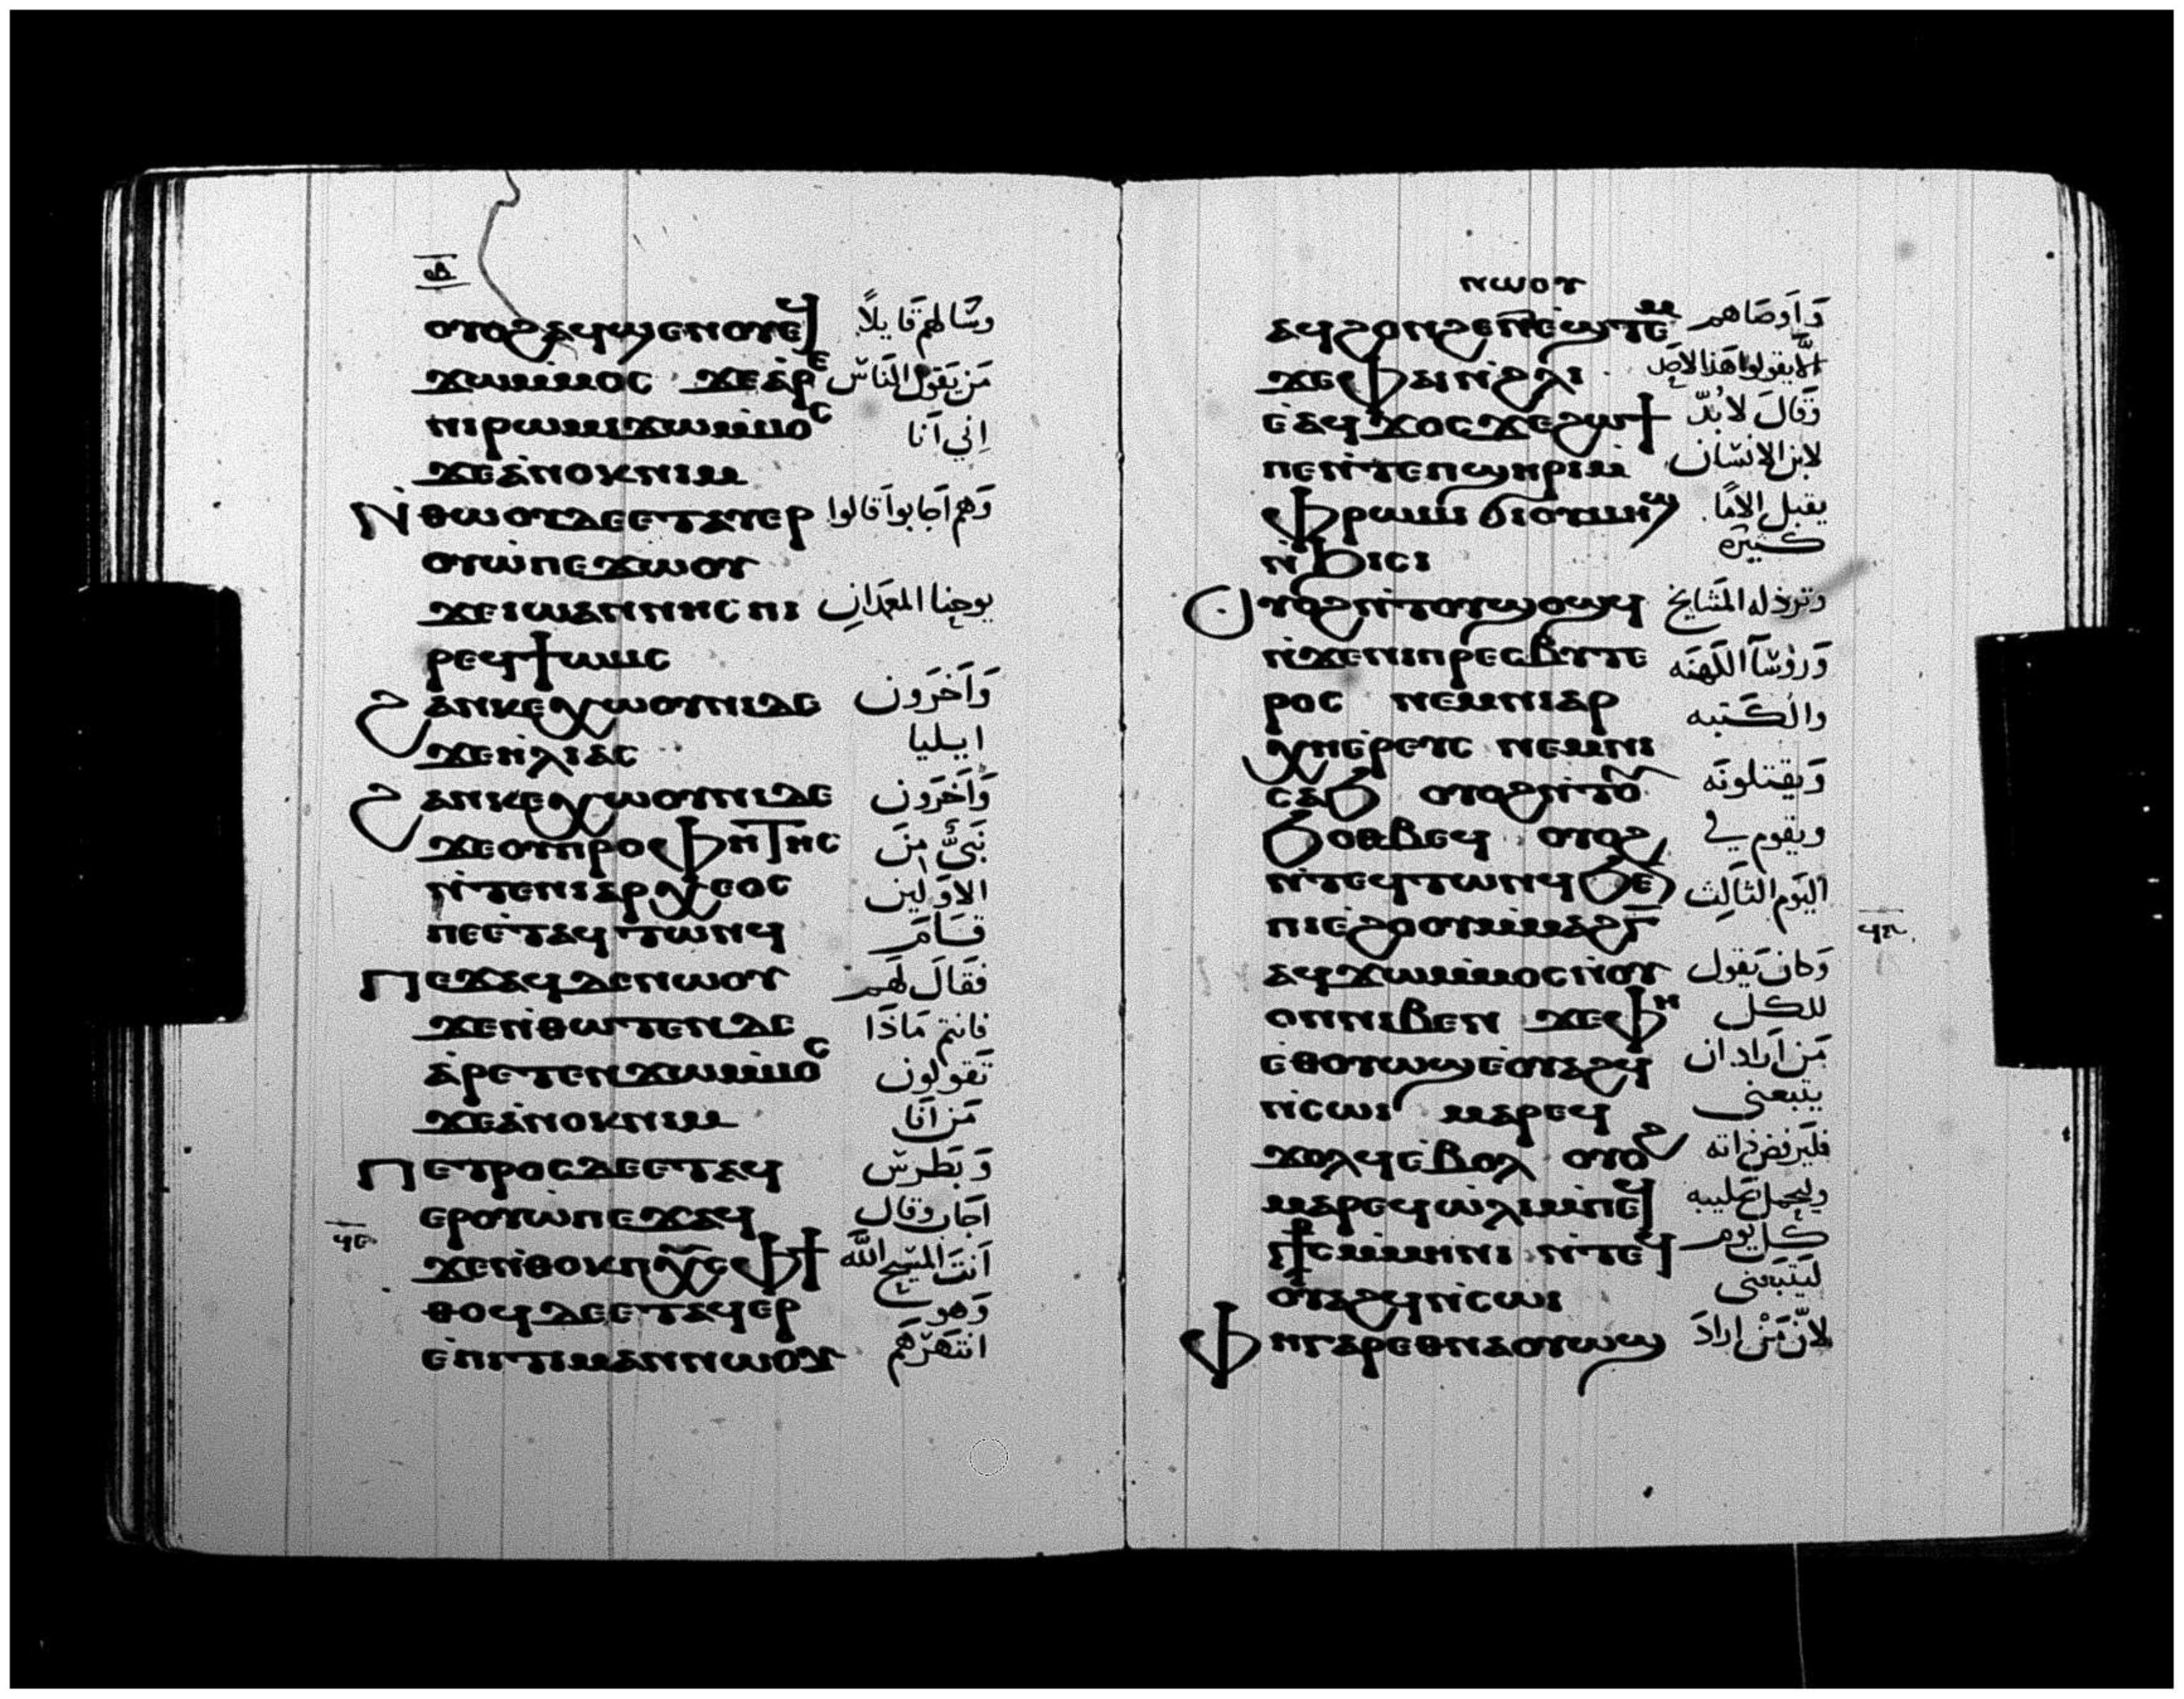 ⲟⲩⲟϩ ⲁϥϣⲉⲛⲟⲩⲉϥ وسَالهم قَايلاً
ϫⲱⲙⲙⲟⲥ ϫⲉⲁⲣⲉ مَن يَقول النَاسْ
ⲛⲓⲣⲱⲙⲓϫⲱⲙⲙⲟⲥ اِني اَنا
ϫⲉⲁⲛⲟⲕⲛⲓⲙ
Ⲛⲑⲱⲟⲩⲇⲉⲉⲧⲁⲩⲉⲣ وَهم اجَابوا قَالوا
ⲟⲩⲱⲡⲉϫⲱⲟⲩ
ϫⲉⲓⲱⲁⲛⲛⲏⲥ ⲡⲓ يوحنا المعمَدانِ
ⲣⲉϥϯⲱⲙⲥ
ϩⲁⲛⲕⲉⲭⲱⲟⲩⲛⲓⲇⲉ وَاَخَرَون
ϫⲉⲏⲗⲓⲁⲥ ايليا
ϩⲁⲛⲕⲉⲭⲱⲟⲩⲛⲓⲇⲉ وَاَخَرَون
ϫⲉⲟⲩⲡⲣⲟⲫⲏⲧⲏⲥ نَبيٌّ مِنَ
ⲛⲧⲉⲛⲓⲁⲣⲭⲉⲟⲥ الاوَلين
ⲡⲉⲉⲧⲁϥⲧⲱⲛϥ قَامَ
Ⲡⲉϫⲁϥⲇⲉⲛⲱⲟⲩ فقَالَ لهَم
ϫⲉⲛⲑⲱⲧⲉⲛⲇⲉ فانتم مَاذَا
ⲁⲣⲉⲧⲉⲛϫⲱⲙⲙⲟⲥ تَقولون
ϫⲉⲁⲛⲟⲕⲛⲓⲙ مَن اَنَا
Ⲡⲉⲧⲣⲟⲥⲇⲉⲉⲧⲁϥ وَبَطرسْ
ⲉⲣⲟⲩⲱⲡⲉϫⲁϥ اجَاب وقال
ϫⲉⲛⲑⲟⲕⲡⲭ̅ⲥ̅ⲫϯ اَنتَ المَسِيح الله
ⲑⲟϥⲇⲉⲉⲧⲁϥⲉⲣ وَهو
ⲉⲡⲓⲧⲓⲙⲁⲛⲛⲱⲟⲩ انتَهَرَهَم
ⲛⲱⲟⲩ
ⲁϥϩⲟⲛϩⲉⲛⲉϣⲧⲉⲙ وَاَوصَاهم
ϫⲉⲫⲁⲓⲛϩⲗⲓ يقولوا هَذا لاحَد
ⲉⲁϥϫⲟⲥϫⲉϩⲱϯ وَقَالَ لا بُدّ
ⲡⲉⲛⲧⲉⲡϣⲏⲣⲓⲙ لابن الانسَان
ⲫⲣⲱⲙⲓϭⲓⲟⲩⲙⲏϣ يقبل الامًا
ⲛϧⲓⲥⲓ كثيرَه
Ⲟⲩⲟϩⲛⲧⲟⲩϣⲟϣϥ وترذله المشَايخ
ⲛϫⲉⲛⲓⲡⲣⲉⲥⲃⲩⲧⲉ وَرؤسَآ الكَهنَه
ⲣⲟⲥ ⲛⲉⲙⲛⲓⲁⲣ والكَتبه
ⲭⲏⲉⲣⲉⲩⲥ ⲛⲉⲙⲛⲓ
ⲥⲁϧ ⲟⲩⲟϩⲛⲧⲟⲩ وَيقتلونَه
ϧⲟⲑⲃⲉϥ ⲟⲩⲟϩ ويَقوم في
ⲛⲧⲉϥⲧⲱⲛϥϧⲉⲛ اليَوم الثَالِث
ⲡⲓⲉϩⲟⲟⲩⲙⲙⲁϩⲅ̅
ⲁϥϫⲱⲙⲙⲟⲥⲛⲟⲩ وَكان يَقول
ⲟⲛⲛⲓⲃⲉⲛ ϫⲉⲫⲏ للكل
ⲉⲑⲟⲩⲱϣⲉⲟⲩⲁϩϥ مَن اَرَاد ان
ⲛⲥⲱⲓ ⲙⲁⲣⲉϥ يتبعنى
ϫⲟⲗϥⲉⲃⲟⲗ ⲟⲩⲟϩ فليَرفض ذاته
ⲙⲁⲣⲉϥⲱⲗⲓⲙⲡⲉϥ وليحمل صَليبه
ⲥ̅ⲙⲙⲏⲛⲓ ⲛⲧⲉϥ كل يَوم
ⲟⲩⲁϩϥⲛⲥⲱⲓ ليَتبَعنى
Ⲫⲏⲅⲁⲣⲉⲑⲛⲁⲟⲩⲱϣ لانّ مَنْ ارادَ